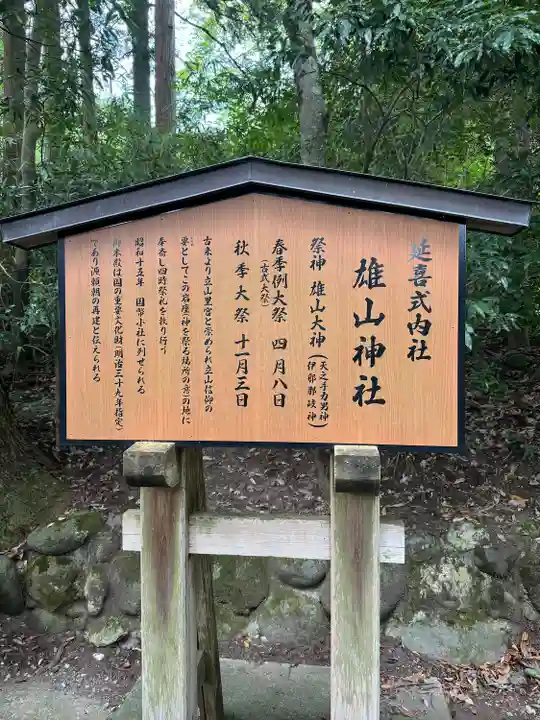 延喜式内社
雄山神社
祭神 雄山大神(天之手力男神
伊邪那岐神)
春季例大祭 四月八日
(古式大祭)
秋季大祭 十一月三日
古来より立山里宮と崇められ立山信仰の
要としてこの岩座(神を祭る場所の意)の地に
奉斎し四時祭礼を執り行う
昭和十五年 国幣小社に列せられる
御本殿は国の重要文化財(明治三十九年指定)
であり源頼朝の再建と伝えられる